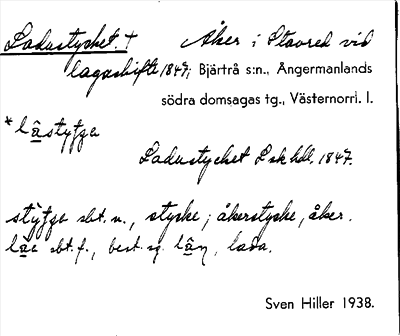 Ladustycket. † Åker i Stavred vid
lagaskifte 1847; Bjärtrå s:n., Ångermanlands
södra domsagas tg., Västernorrl. l.
* lâstyʒʒa
Ladustycket Lskhdl. 1847.
sbt. n., stycke; åkerstycke, åker.
sbt. f., best. sg. lân, lada.
Sven Hiller 1938.